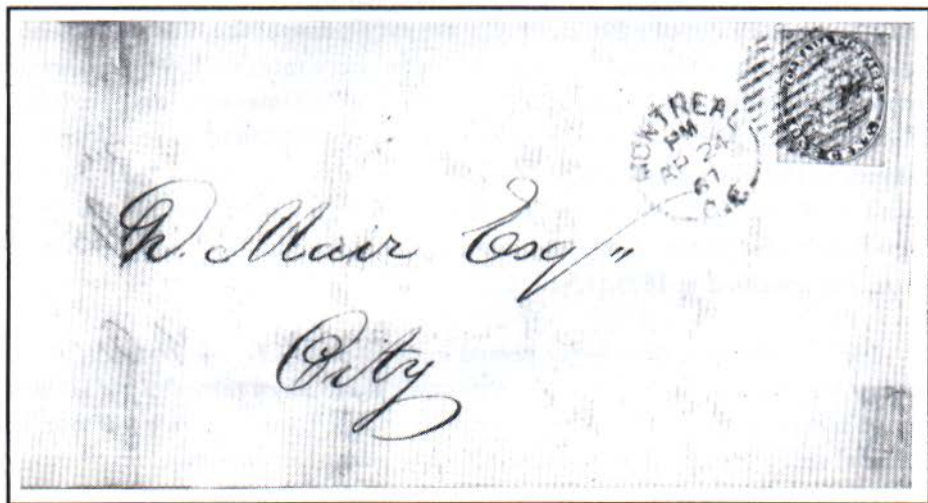 MONTREAL
PM
AP 24
67
C.E.
W. Mair Esq"
City